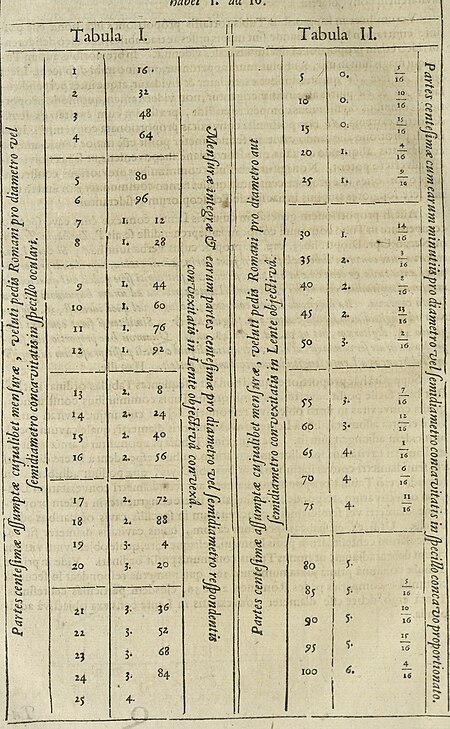 habet 1. ad 16.
Tabula I.
Partes centesimæ assumptæ cujuslibet mensuræ, veluti pedis Romani pro diametro vel
semidiametro concavitatis in specillo oculari.
1 16.
2 32
3 48
4 64
5 80
6 96
7 1. 12
8 1. 28
9 1. 44
10 1. 60
11 1. 76
12 1. 92
13 2. 8
14 2. 24
15 2. 40
16 2. 56
17 2. 72
18 2. 88
19 3. 4
20 3. 20
21 3. 36
22 3. 52
23 3. 68
24 3. 84
25 4.
Mensuræ integræ & earum partes centesimæ pro diametro vel semidiametro respondentis
convexitatis in Lente objectivâ convexâ.
Tabula II.
Partes centesimæ assumptæ cujuslibet mensuræ, veluti pedis Romani pro diametro aut
semidiametro convexitatis in Lente objectivâ.
5 0. 5/16
10 0. 10/16
15 0. 15/16
20 1. 4/16
25 1. 9/16
30 1. 14/16
35 2. 3/16
40 2. 8/16
45 2. 13/16
50 3. 2/16
55 3. 7/16
60 3. 12/16
65 4. 1/16
70 4. 6/16
75 4. 11/16
80 5.
85 5. 5/16
90 5. 10/16
95 5. 15/16
100 6. 4/16
Partes centesimæ cum earum minutiis pro diametro vel semidiametro concavitatis in specillo concavo proportionato.